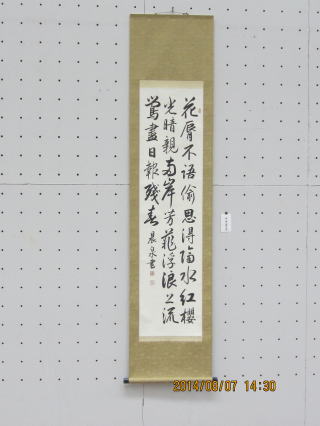 花脣不語偷思得隔水紅櫻
光晴親两岸芳菲浮浪上流
鶯盡日報殘春 晨泉書
2014/08/07 14:30